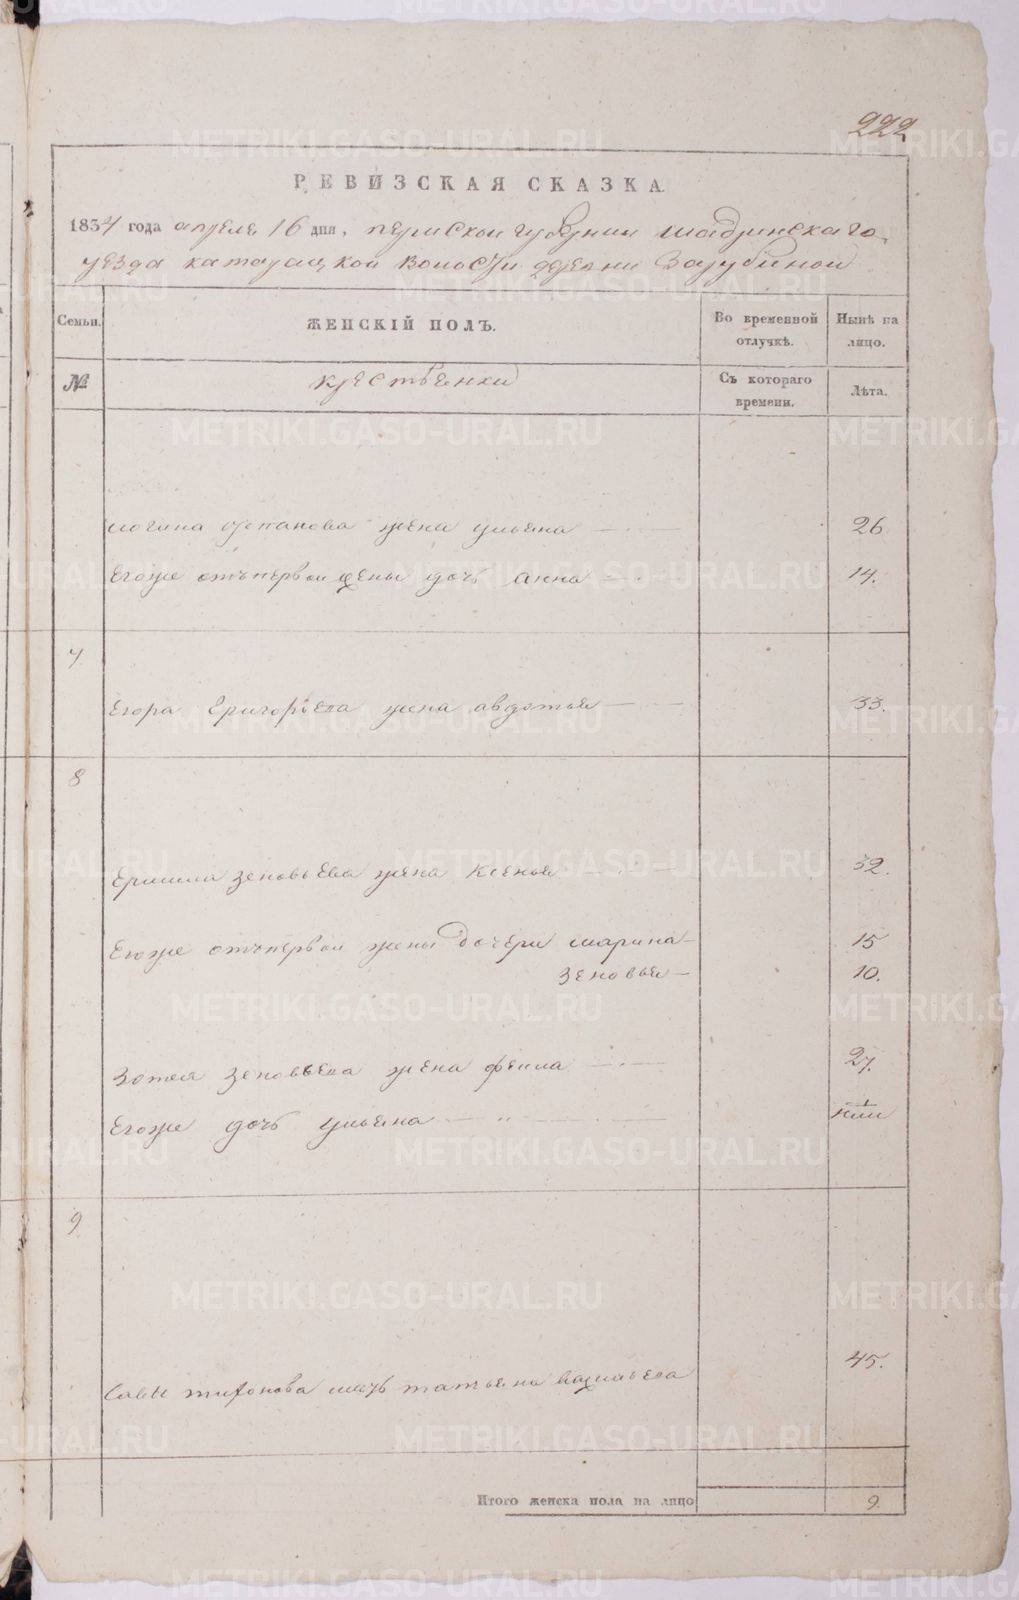 222
РЕВИЗСКАЯ СКАЗКА.
1854 года апреля 16 дня, пермской губернии шадринскаго
уезда катарацкой волости деревни Зарубиной
Семьи. ЖЕНСКІЙ ПОЛЪ. Во временной отлучкѣ. Нынѣ на лицо.
№ крестьянки Съ котораго времени. Лѣта.
логина степанова жена ульяна 26
Егоже отъ первой жены дочь анна 14.
7
Егора Григорьева жена авдотья 33.
8
Ермила зеновьева жена Ксенья 32.
Егоже отъ первой жены дочери марина 15
зеновья 10.
Зотея зеновьева жена фекла 27.
Егоже дочь ульяна
9
Савы тихонова мать татьяна васильева 45.
Итого женска пола на лицо 9
METRIKI.GASO-URAL.RU